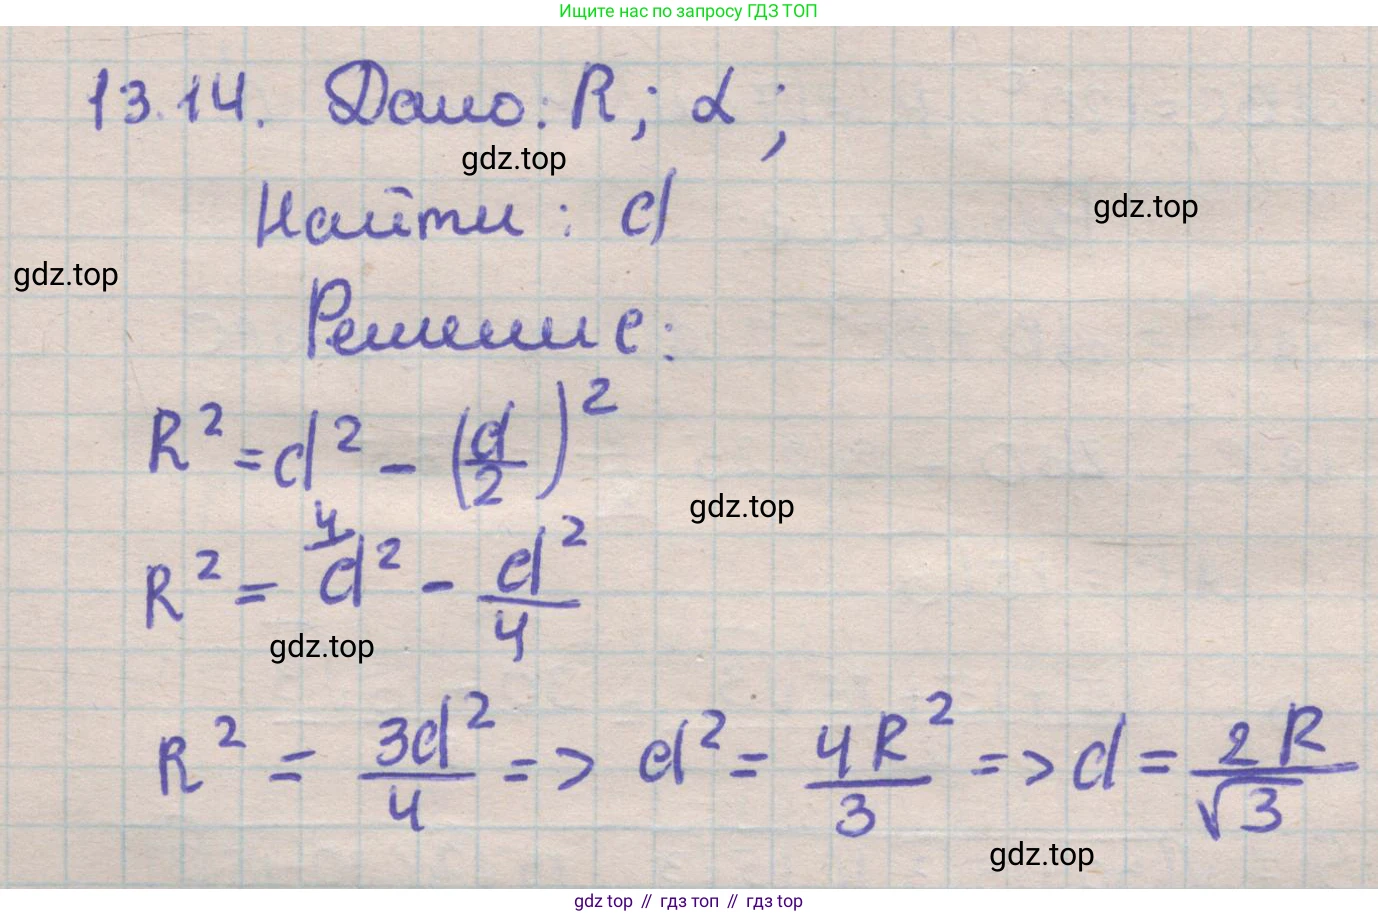 Ищите нас по запросу ГДЗ ТОП
13.14. Дано: R; α;
gdz.top
Найти: d
gdz.top
gdz.top
Решение:
R² = d² - (d/2)²
gdz.top
R² = ⁴⁄d² - d²/4
gdz.top
R² = 3d²/4 => d² = 4R²/3 => d = 2R/√3
gdz.top
gdz.top // гдз топ // гдз top